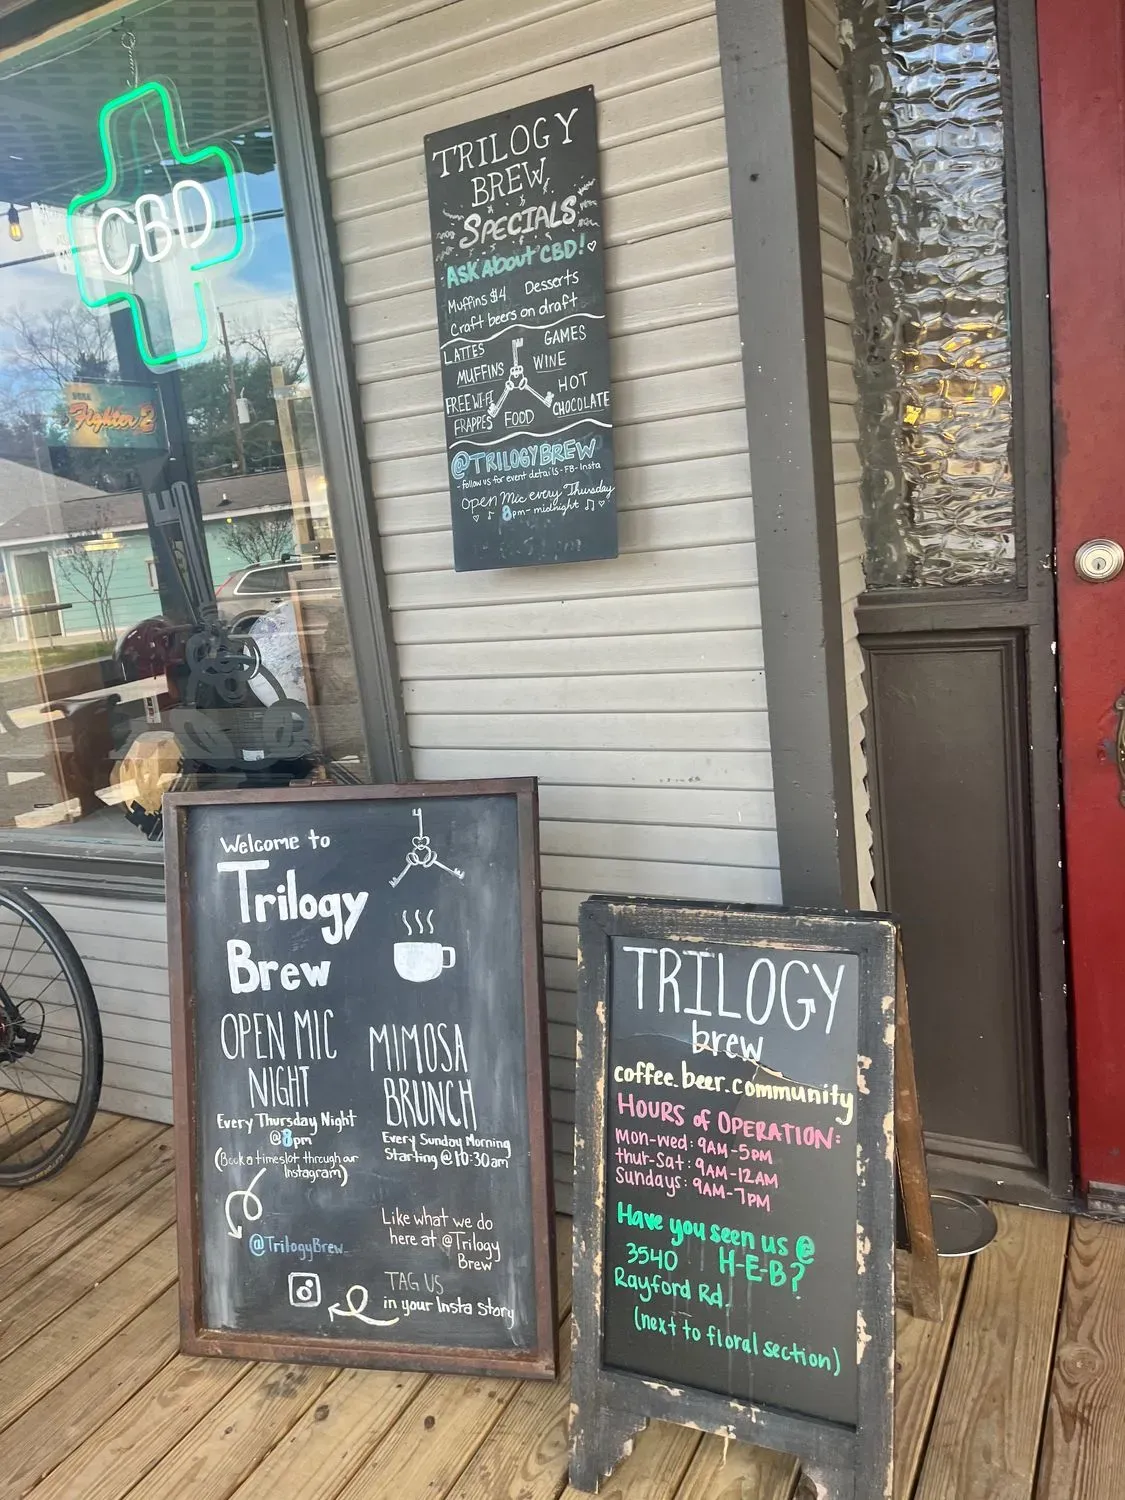 CBD
SEGA
Fighter 2
TRILOGY
BREW
SPECIALS
ASK About CBD!
Muffins $4 Desserts
Craft beers on draft
LATTES GAMES
MUFFINS WINE
FREE WI-FI HOT
CHOCOLATE
FRAPPES FOOD
@TRILOGYBREW
-follow us for event details-FB-Insta
Open Mic every Thursday
8pm-midnight
Welcome to
Trilogy
Brew
OPEN MIC
NIGHT
Every Thursday Night
@8pm
(Book a timeslot through our
Instagram)
@TrilogyBrew_
MIMOSA
BRUNCH
Every Sunday Morning
Starting @ 10:30am
Like what we do
here at @Trilogy
Brew
TAG US
in your Insta Story
TRILOGY
brew
coffee.beer.community
HOURS of OPERATION:
Mon-Wed: 9AM-5PM
Thur-Sat: 9AM-12AM
Sundays: 9AM-7PM
Have you seen us @
3540 H-E-B?
Rayford Rd.
(next to floral section)